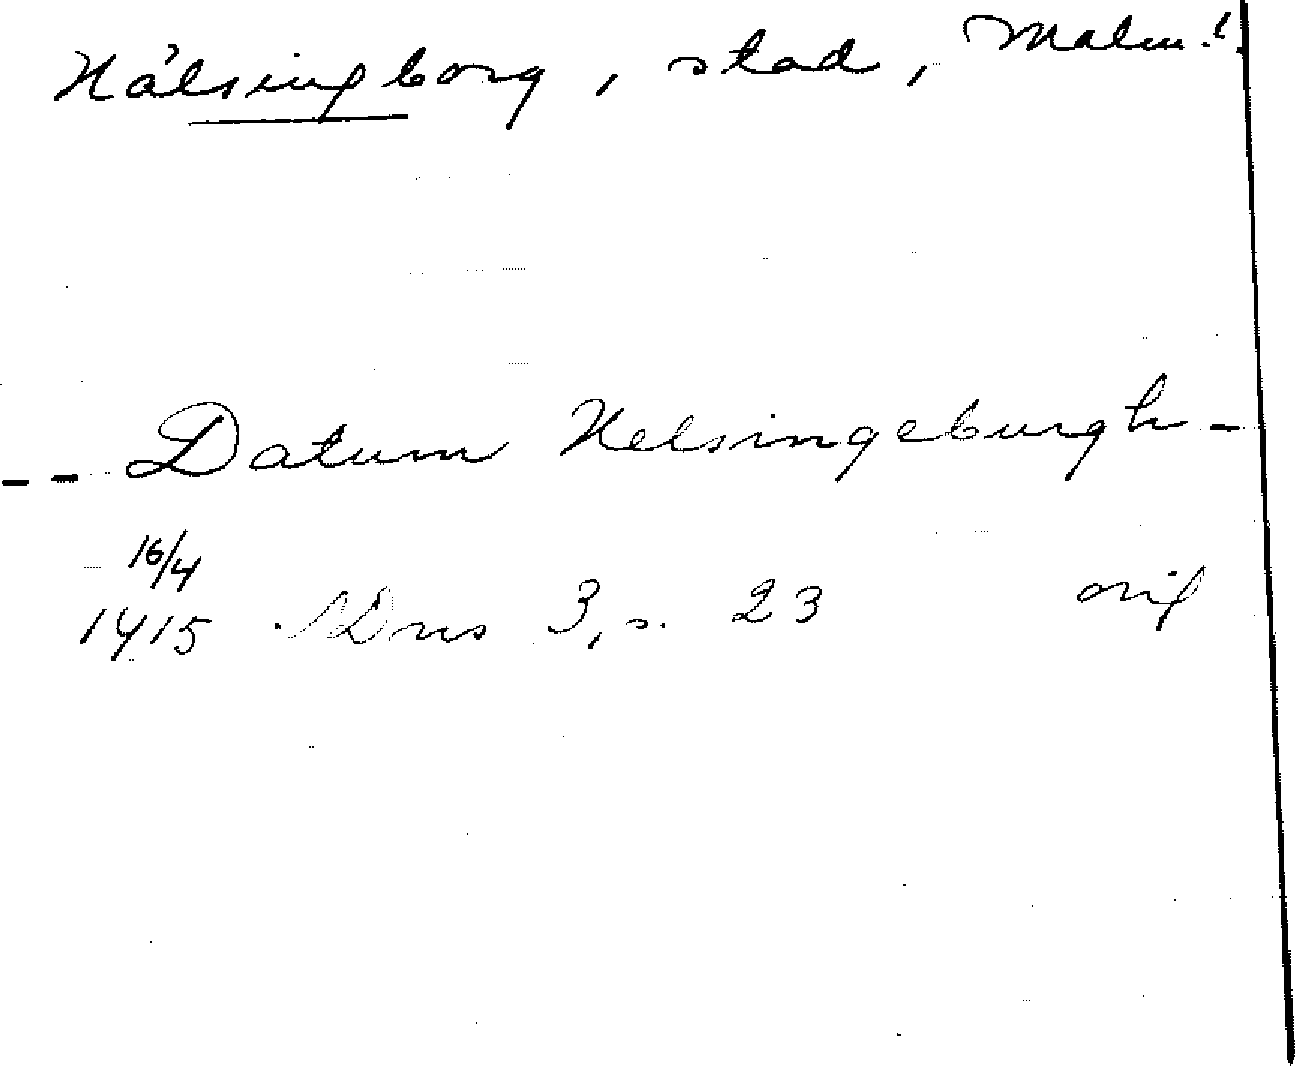 Hälsingborg, stad, Malm. l.
-- Datum Helsingeburgh -
16/4
1415 SDns 3, s. 23 orig